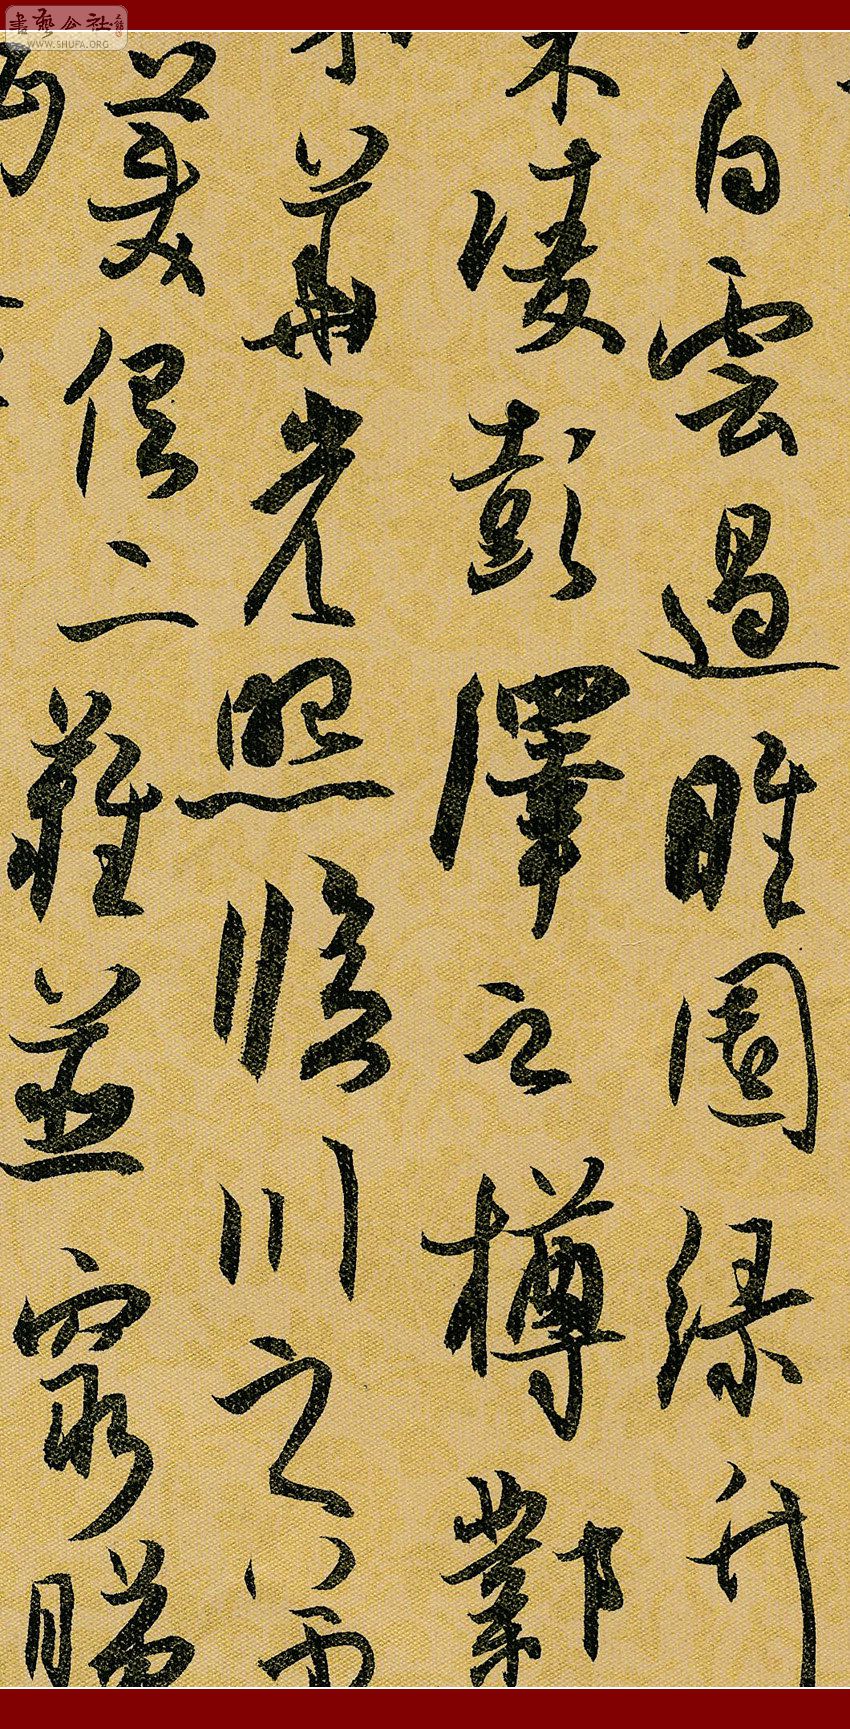 書藝公社
WWW.SHUFA.ORG
白雲遏睢園綠竹
凌彭澤之樽鄴
華光照臨川之筆
美俱二難並窮睇